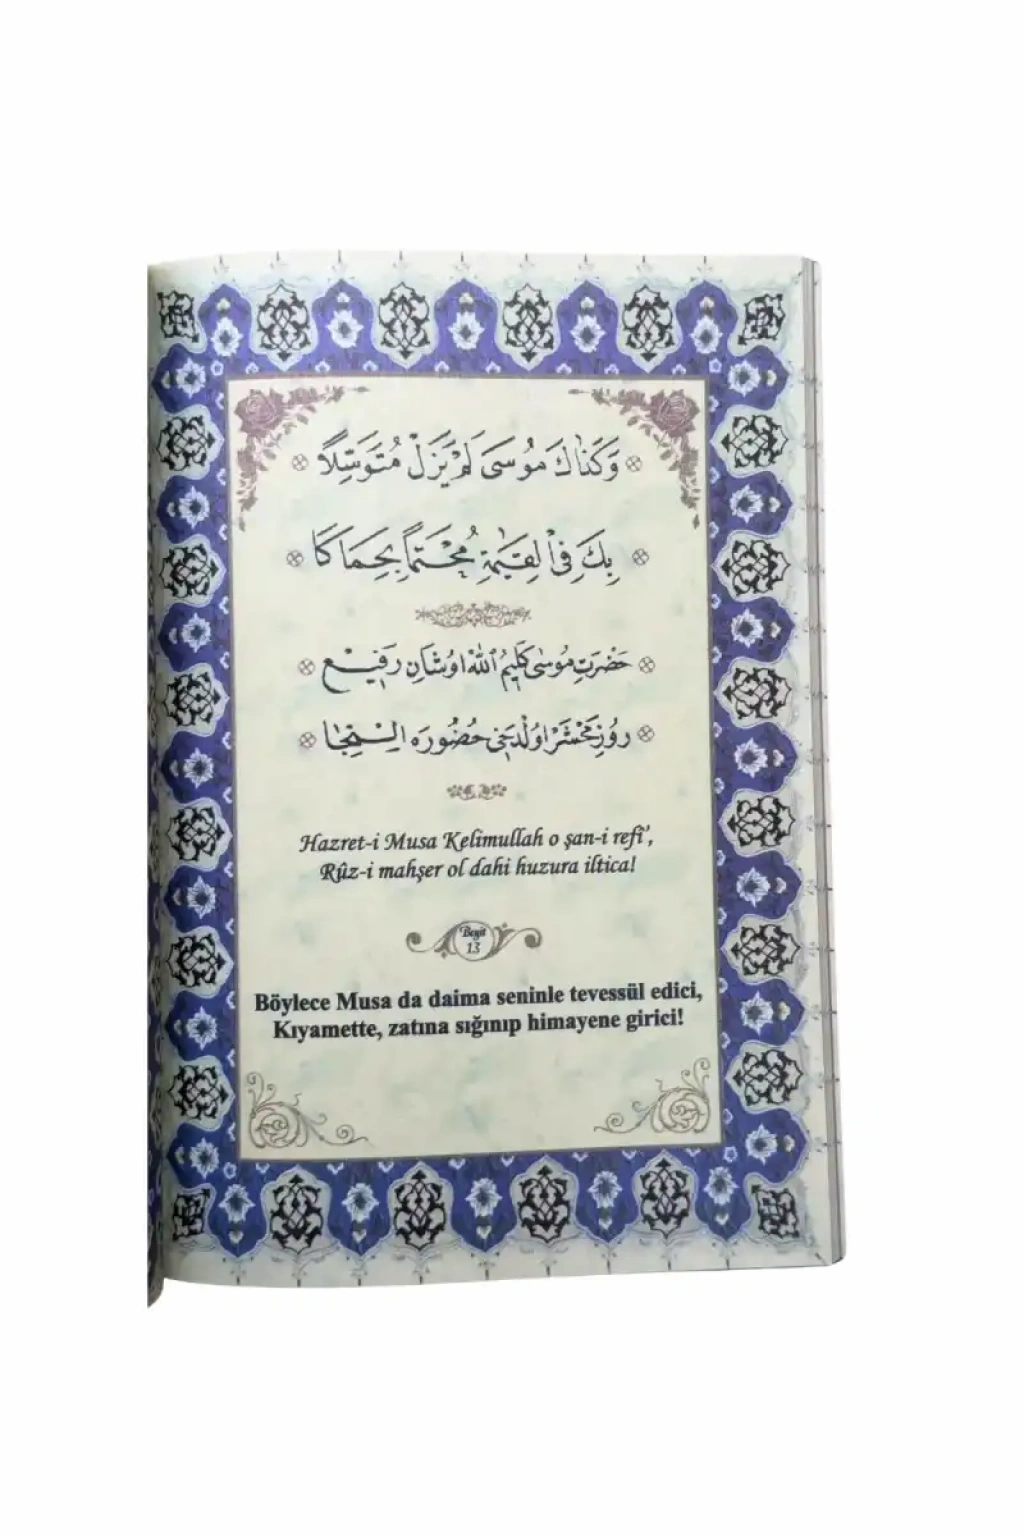 وَكَذَاكَ مُوسَى لَمْ يَزَلْ مُتَوَسِّلًا
بِكَ فِي الْقِيٰمَةِ مُحْتَمًا بِحِمَاكَا
حَضْرَتِ مُوسٰى كَلِيمُ اللّٰه اوُ شَانِ رَفِيع
رُوزِ مَحْشَرْ اوُلْ دَخِي حُضُورَه اِلْتِجَا
Hazret-i Musa Kelimullah o şan-i refî',
Rûz-i mahşer ol dahi huzura iltica!
Beyit
13
Böylece Musa da daima seninle tevessül edici,
Kıyamette, zatına sığınıp himayene girici!